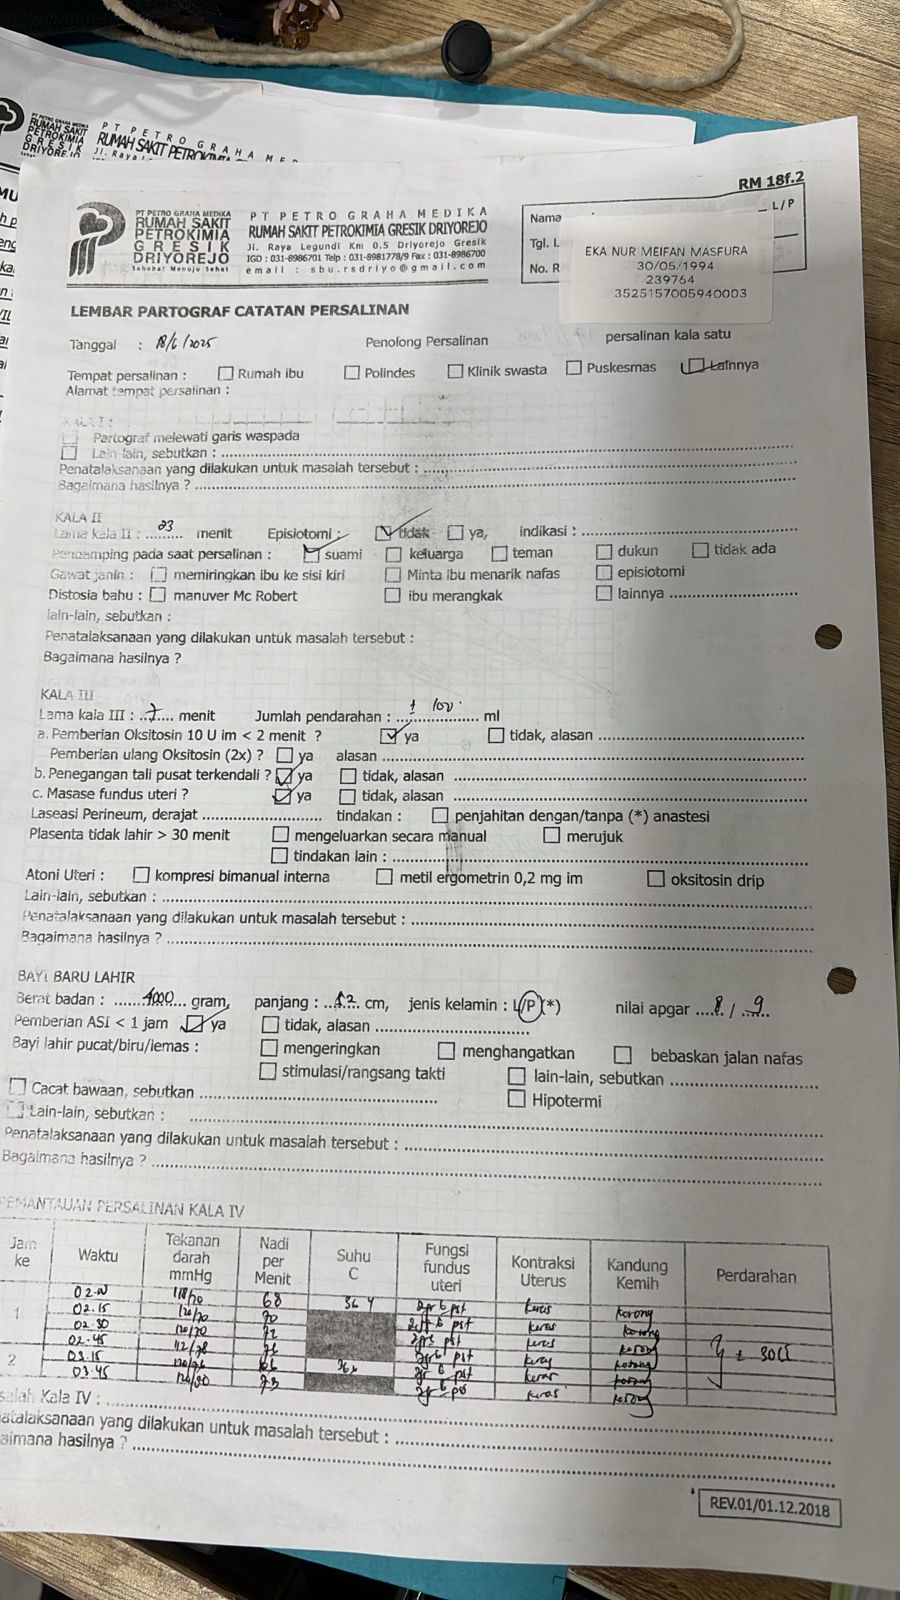 PT PETRO GRAHA MEDIKA
RUMAH SAKIT
PETROKIMIA
GRESIK
DRIYOREJO
PT PETRO GRAHA MED
RUMAH SAKIT PETROKIMIA
Jl. Raya
RM 18f.2
PT PETRO GRAHA MEDIKA
RUMAH SAKIT
PETROKIMIA
GRESIK
DRIYOREJO
Sahabat Menuju Sehat
PT PETRO GRAHA MEDIKA
RUMAH SAKIT PETROKIMIA GRESIK DRIYOREJO
Jl. Raya Legundi Km 0.5 Driyorejo Gresik
IGD : 031-8986701 Telp : 031-8981778/9 Fax : 031-8986700
email : sbu.rsdriyo@gmail.com
Nama L/P
Tgl. L
No. R
EKA NUR MEIFAN MASFURA
30/05/1994
239764
3525157005940003
LEMBAR PARTOGRAF CATATAN PERSALINAN
Tanggal : 18/6/2025 Penolong Persalinan persalinan kala satu
Tempat persalinan : Rumah ibu Polindes Klinik swasta Puskesmas Lainnya
Alamat tempat persalinan :
KALA I :
Partograf melewati garis waspada
Lain lain, sebutkan :
Penatalaksanaan yang dilakukan untuk masalah tersebut :
Bagaimana hasilnya ?
KALA II
Lama kala II : 23 menit Episiotomi : tidak ya, indikasi :
Pendamping pada saat persalinan : suami keluarga teman dukun tidak ada
Gawat janin : memiringkan ibu ke sisi kiri Minta ibu menarik nafas episiotomi
Distosia bahu : manuver Mc Robert ibu merangkak lainnya
lain-lain, sebutkan :
Penatalaksanaan yang dilakukan untuk masalah tersebut :
Bagaimana hasilnya ?
KALA III
Lama kala III : 7 menit Jumlah pendarahan : ± 100 ml
a. Pemberian Oksitosin 10 U im < 2 menit ? ya tidak, alasan
Pemberian ulang Oksitosin (2x) ? ya alasan
b. Penegangan tali pusat terkendali ? ya tidak, alasan
c. Masase fundus uteri ? ya tidak, alasan
Laseasi Perineum, derajat tindakan : penjahitan dengan/tanpa (*) anastesi
Plasenta tidak lahir > 30 menit mengeluarkan secara manual merujuk
tindakan lain :
Atoni Uteri : kompresi bimanual interna metil ergometrin 0,2 mg im oksitosin drip
Lain-lain, sebutkan :
Penatalaksanaan yang dilakukan untuk masalah tersebut :
Bagaimana hasilnya ?
BAYI BARU LAHIR
Berat badan : 4000 gram, panjang : 52 cm, jenis kelamin : L/P (*) nilai apgar 8 / 9
Pemberian ASI < 1 jam ya tidak, alasan
Bayi lahir pucat/biru/lemas : mengeringkan menghangatkan bebaskan jalan nafas
stimulasi/rangsang takti lain-lain, sebutkan
Cacat bawaan, sebutkan Hipotermi
Lain-lain, sebutkan :
Penatalaksanaan yang dilakukan untuk masalah tersebut :
Bagaimana hasilnya ?
PEMANTAUAN PERSALINAN KALA IV
Jam ke Waktu Tekanan darah mmHg Nadi per Menit Suhu C Fungsi fundus uteri Kontraksi Uterus Kandung Kemih Perdarahan
1 02.00 118/70 68 36 4 2jr b pst keras kosong
02.15 120/70 70 2jr b pst keras kosong
02.30 120/70 72 2jr b pst keras kosong
02.45 112/78 2jr b pst keras kosong ± 30cc
2 03.15 66 366 2jr b pst keras kosong
03.45 120/80 73 2jr b pst keras kosong
salah Kala IV :
atalaksanaan yang dilakukan untuk masalah tersebut :
aimana hasilnya ?
REV.01/01.12.2018